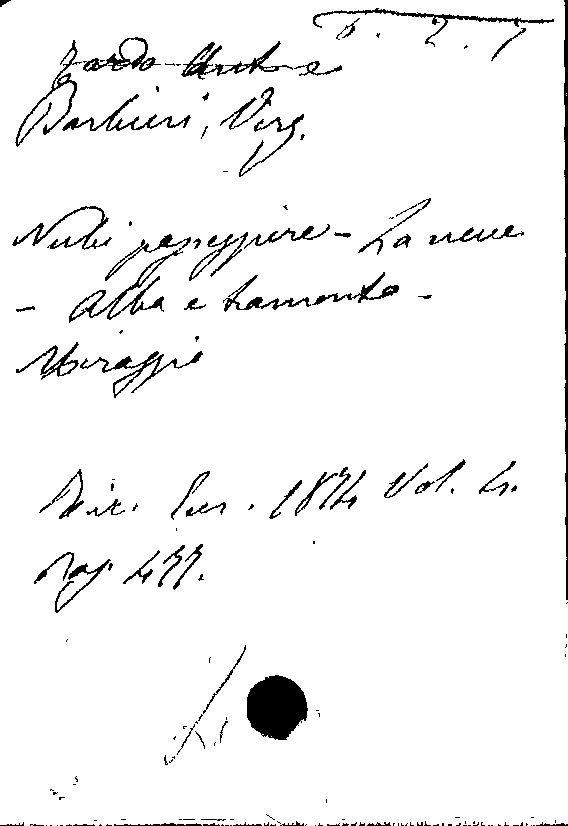 6. 2. 7
Zardo Anto
Barbieri, Virg.
Nubi passeggiere - La neve
- Alba e tramonto -
Miraggio
Riv. Eur. 1874 Vol. 4.
Pag 477.